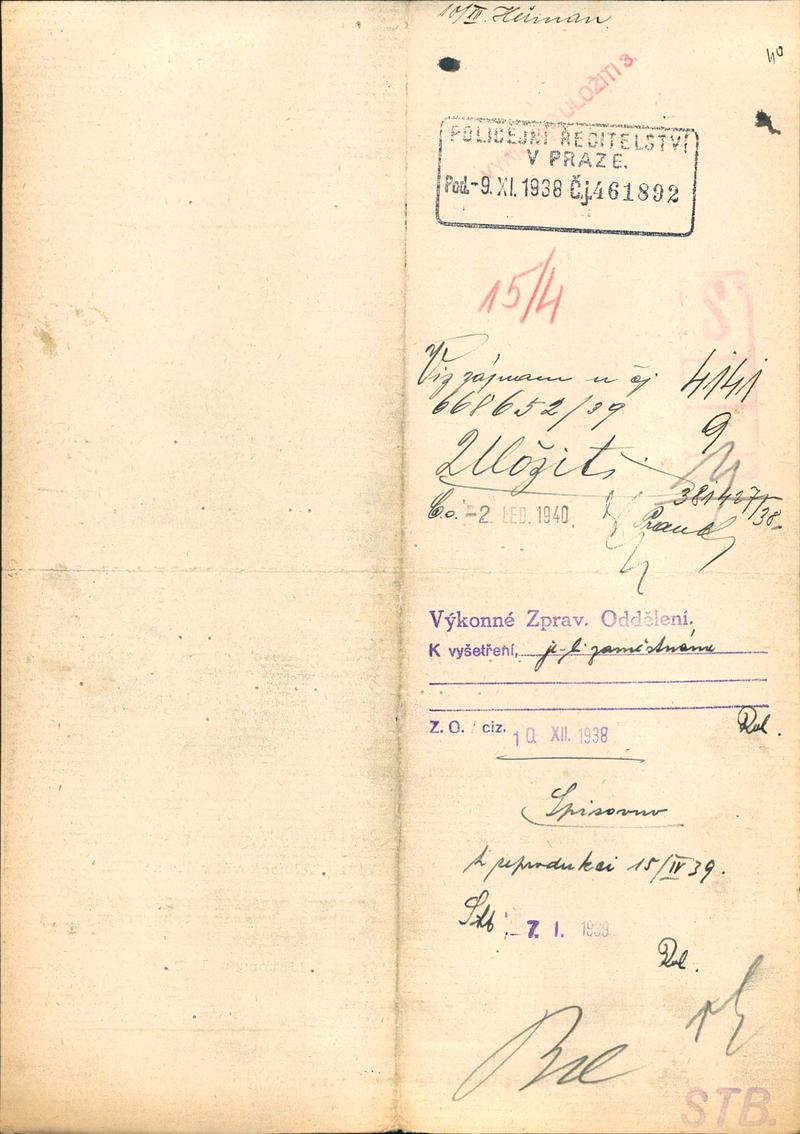 10/IV.
40
ULOŽITI 3.
POLICEJNÍ ŘEDITELSTVÍ
V PRAZE.
Pod. -9. XI. 1938 Č.j. 461892
15/4
S
Viz záznam u čj.
668652/39
4141
9
Uložiti.
381427/38-
-2. LED. 1940
Výkonné Zprav. Oddělení.
K vyšetření, je-li zaměstnána
Z. O. / ciz. 10. XII. 1938
Rol.
Spisovno
k reprodukci 15/IV 39.
- 7. I. 1939
Rol.
STB.